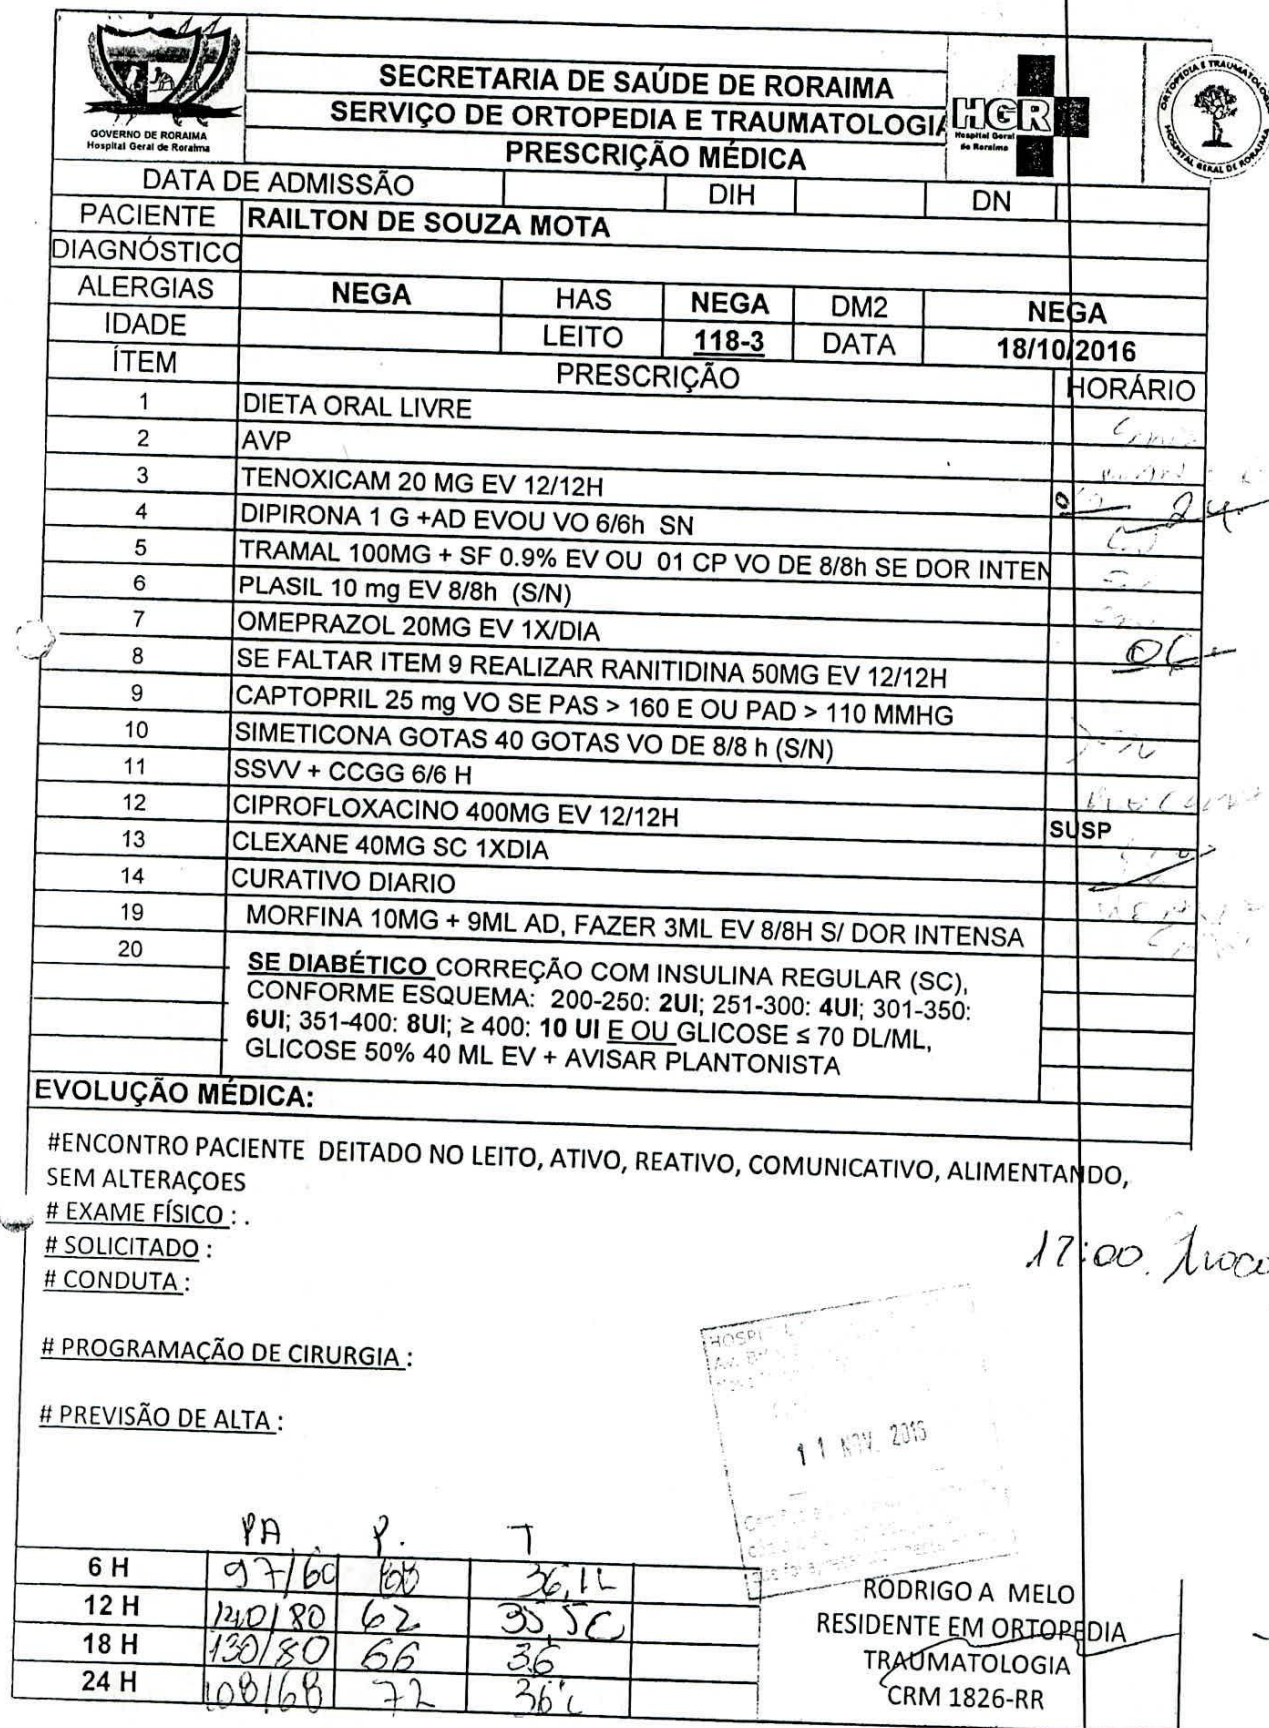 GOVERNO DE RORAIMA
Hospital Geral de Roraima
SECRETARIA DE SAÚDE DE RORAIMA
SERVIÇO DE ORTOPEDIA E TRAUMATOLOGIA
PRESCRIÇÃO MÉDICA
HGR
Hospital Geral
de Roraima
ORTOPEDIA E TRAUMATOLOGIA
HOSPITAL GERAL DE RORAIMA
DATA DE ADMISSÃO DIH DN
PACIENTE RAILTON DE SOUZA MOTA
DIAGNÓSTICO
ALERGIAS NEGA HAS NEGA DM2 NEGA
IDADE LEITO 118-3 DATA 18/10/2016
ÍTEM PRESCRIÇÃO HORÁRIO
1 DIETA ORAL LIVRE
2 AVP
3 TENOXICAM 20 MG EV 12/12H 24
4 DIPIRONA 1 G +AD EVOU VO 6/6h SN
5 TRAMAL 100MG + SF 0.9% EV OU 01 CP VO DE 8/8h SE DOR INTEN
6 PLASIL 10 mg EV 8/8h (S/N)
7 OMEPRAZOL 20MG EV 1X/DIA 06
8 SE FALTAR ITEM 9 REALIZAR RANITIDINA 50MG EV 12/12H
9 CAPTOPRIL 25 mg VO SE PAS > 160 E OU PAD > 110 MMHG
10 SIMETICONA GOTAS 40 GOTAS VO DE 8/8 h (S/N)
11 SSVV + CCGG 6/6 H
12 CIPROFLOXACINO 400MG EV 12/12H SUSP
13 CLEXANE 40MG SC 1XDIA
14 CURATIVO DIARIO
19 MORFINA 10MG + 9ML AD, FAZER 3ML EV 8/8H S/ DOR INTENSA
20 SE DIABÉTICO CORREÇÃO COM INSULINA REGULAR (SC),
CONFORME ESQUEMA: 200-250: 2UI; 251-300: 4UI; 301-350:
6UI; 351-400: 8UI; ≥ 400: 10 UI E OU GLICOSE ≤ 70 DL/ML,
GLICOSE 50% 40 ML EV + AVISAR PLANTONISTA
EVOLUÇÃO MÉDICA:
#ENCONTRO PACIENTE DEITADO NO LEITO, ATIVO, REATIVO, COMUNICATIVO, ALIMENTANDO,
SEM ALTERAÇOES
# EXAME FÍSICO : .
# SOLICITADO :
17:00.
# CONDUTA :
# PROGRAMAÇÃO DE CIRURGIA :
# PREVISÃO DE ALTA :
11 NOV. 2016
PA P. T
6 H 97/60 36,1
12 H 140/80 62 35,5C
18 H 130/80 66 36
24 H 108/68 72 36°C
RODRIGO A MELO
RESIDENTE EM ORTOPEDIA
TRAUMATOLOGIA
CRM 1826-RR